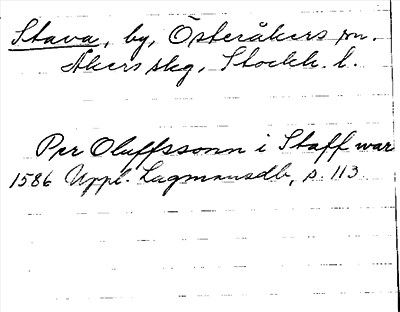 Stava, by, Österåkers sn.
Åkers skg, Stockh. l.
Per Oluffssonn i Staff war
1586 Uppl. Lagmansdb, s. 113